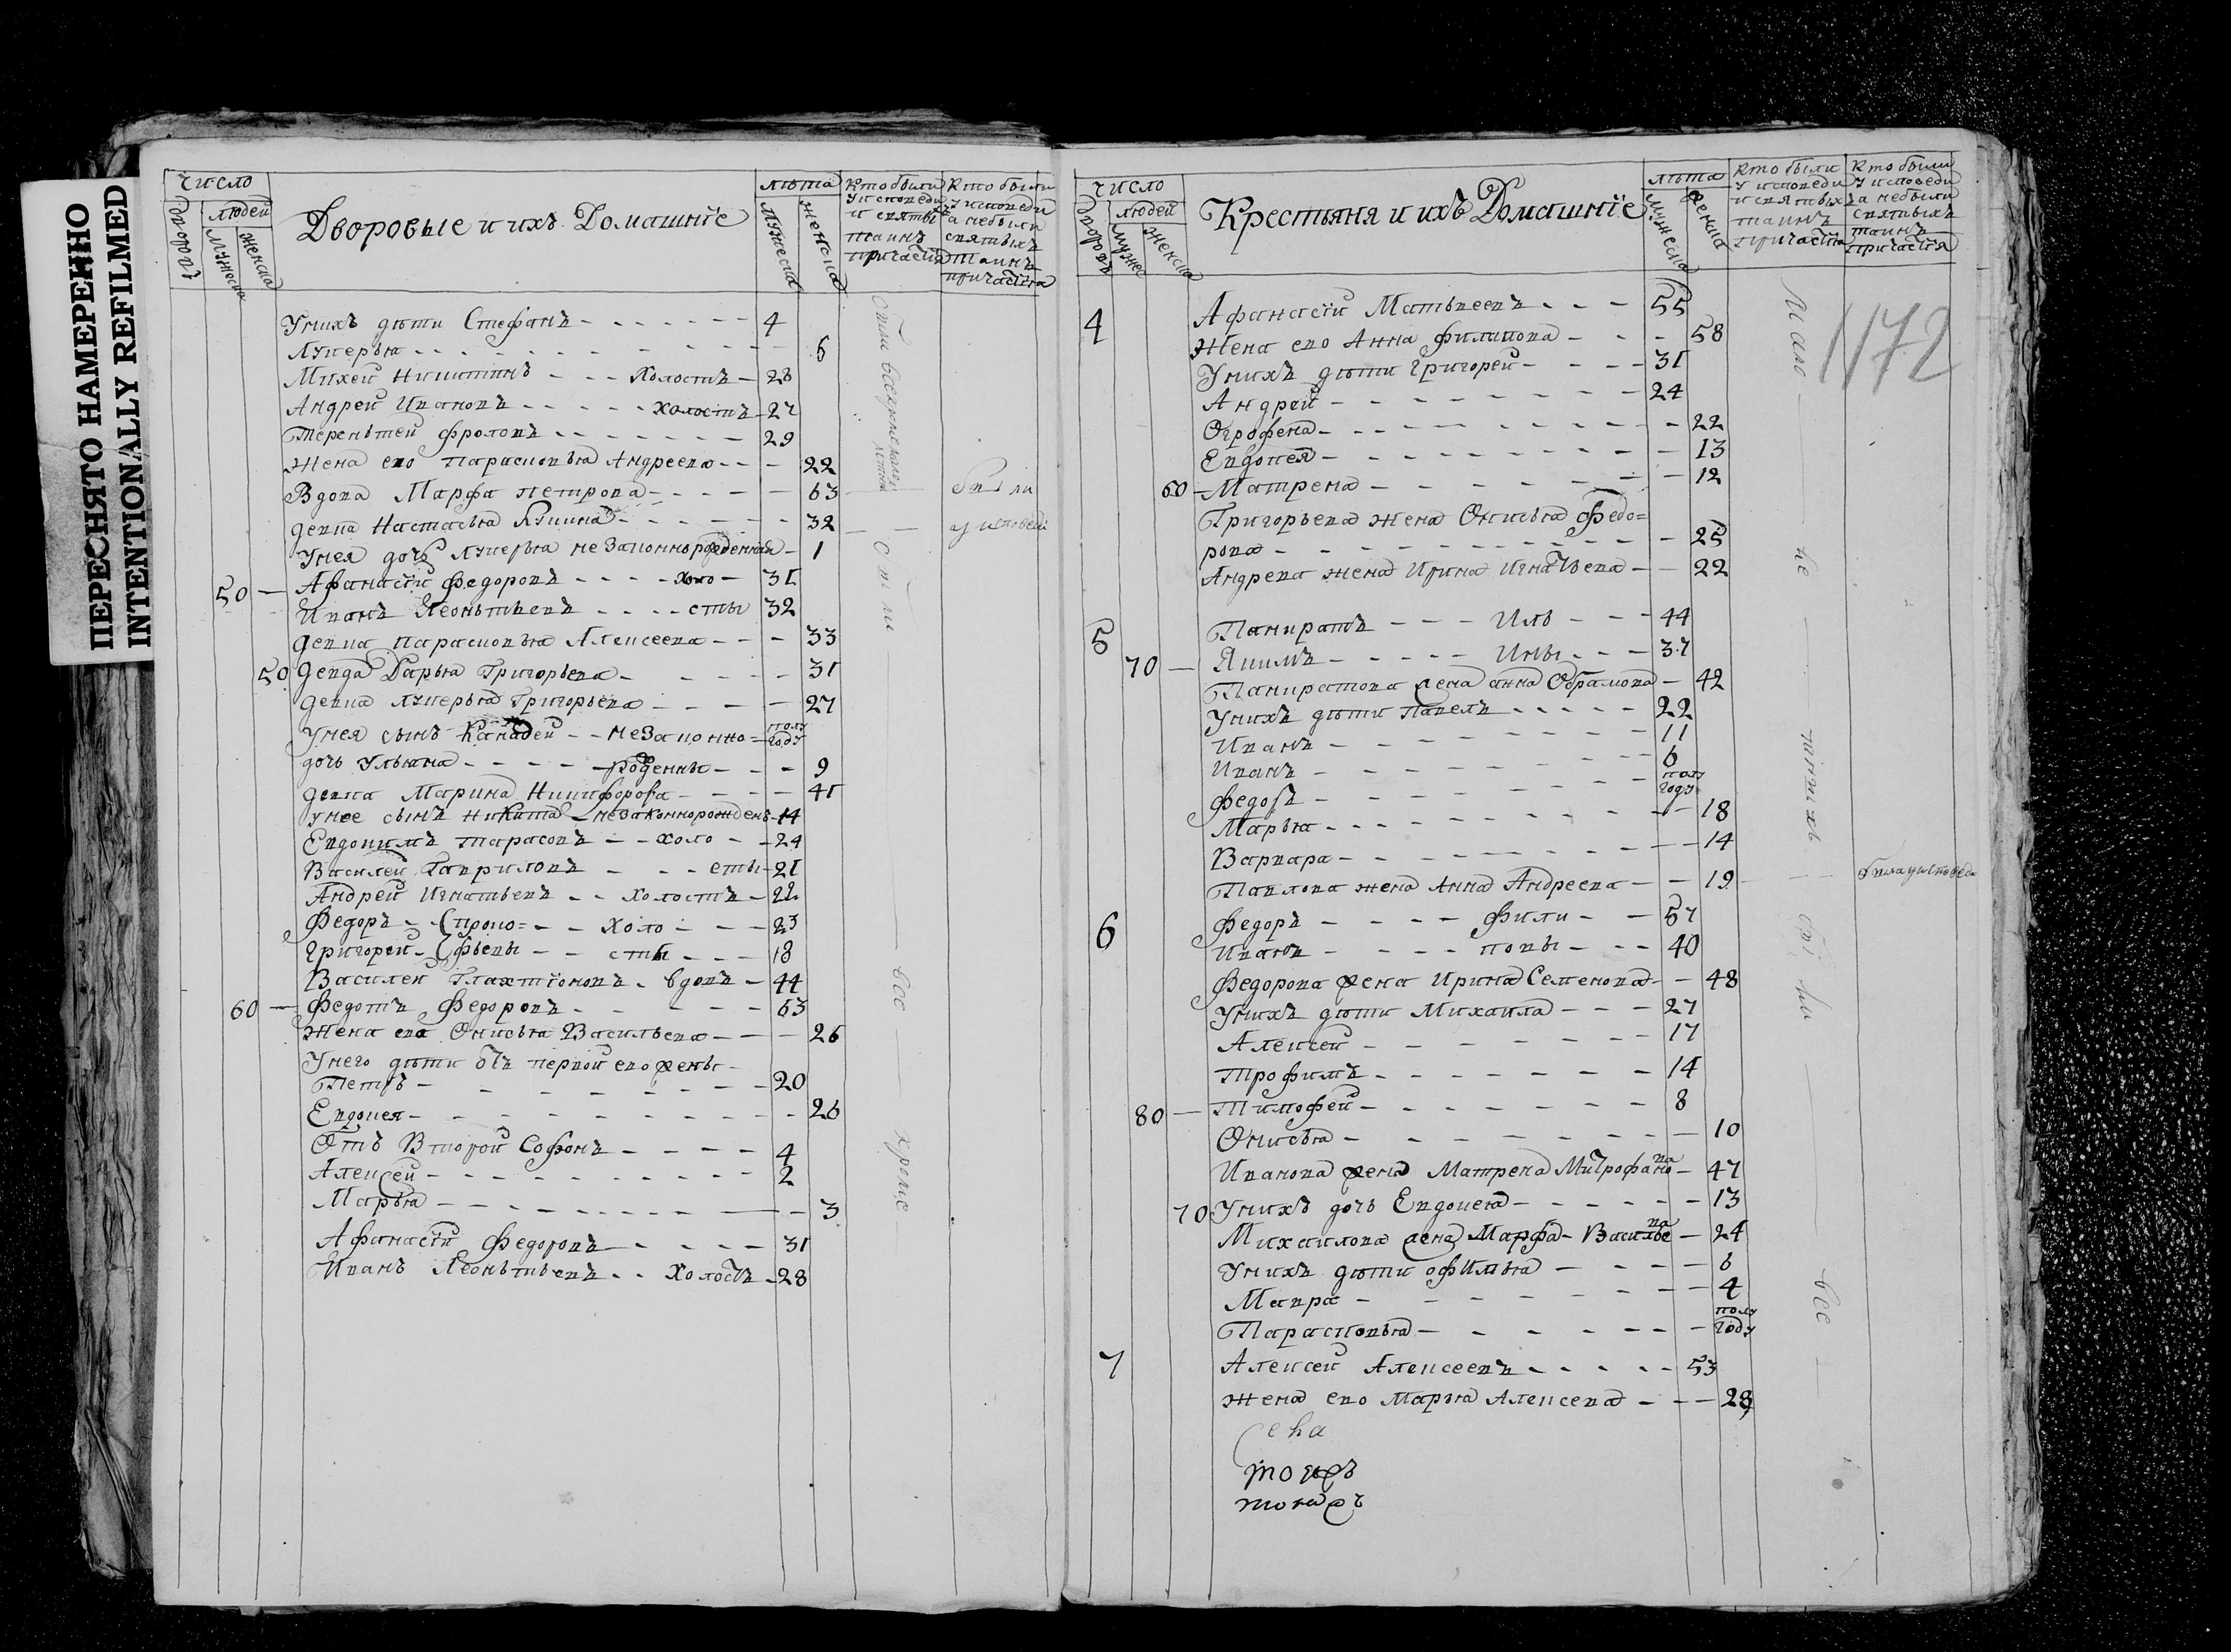 ПЕРЕСНЯТО НАМЕРЕННО
INTENTIONALLY REFILMED
число
дворовъ
людей
мужеска
женска
Дворовые и ихъ Домашніе
лѣта
мужеска
женска
кто были
у исповеди
и святыхъ
таинъ
причастія
кто были
у исповеди
а небыли
святыхъ
таинъ
причастія
Унихъ дѣти Стефанъ 4
Лукерья
Михей Никитинъ холостъ 28
Андрей Ивановъ холостъ 27
Терентей Фроловъ 29
жена ево Парасковья Андреева 22
Вдова Марфа петрова 63 были
девка Настасья 32 у исповеди
Унея дочь лукерья незаконнорожденная 1
50 Афанасій Федоровъ холо 31
Иванъ Леонтьевъ сты 32
девка парасковья Алексеева 33
50 Девка Дарья Григорьева 31
девка лукерья Григорьева 27
Унея сынъ незаконно полу году
дочь Ульяна рожденны 9
девка Марина Никифорова 41
унее сынъ никита незаконнорожденъ 14
Евдокимъ тарасовъ холо 24
Василей Гавриловъ сты 21
Андрей Игнатьевъ холостъ 22
Федоръ Проко= холо 23
Григорей фьевы сты 18
Василей Галахтіоновъ вдовъ 44
60 Федотъ Федоровъ 63
жена ево Онисья Васильева 26
Унего дѣти отъ первой ево жены
Петръ 20
Евдокея 26
Отъ Второй Софонъ 4
Алексей 2
Марья 3
Афанасій Федоровъ 31
Иванъ Леонтьевъ холостъ 28
были
все
кроме
число
дворовъ
людей
мужес
женска
Крестьяня и ихъ Домашніе
лѣта
мужеска
женска
кто были
у исповеди
и святыхъ
таинъ
причастія
кто были
у исповеди
а небыли
святыхъ
таинъ
причастія
1172
4 Афанасій Матьвеевъ 55
жена ево Анна филипова 58
Унихъ дѣти Григорей 31
Андрей 24
Огрофена 22
Евдокея 13
60 Матрена 12
Григорьева жена Онисья Федо=
рова 25
Андрева жена Ирина Игнатьева 22
5 Панкратъ Иль 44
70 Якимъ ины 37
Панкратова жена анна Обрамова 42
Унихъ дѣти павелъ 22
Иванъ 11
Иванъ 6
Федотъ полу году
Марья 18
Варвара 14
Павлова жена Анна Андреева 19 была уисповеди
6 Федоръ фили 57
Иванъ повы 40
Федорова жена Ирина Семенова 48
Унихъ дѣти Михаила 27
Алексей 17
Трофимъ 14
80 Тимофей 8
Онисья 10
Иванова жена Матрена Митрофанова 47
70 Унихъ дочь Евдокея 13
Михаилова жена Марфа Васильева 24
Унихъ дѣти офимья 6
Мавра 4
Парасковья полу году
7 Алексей Алексеевъ 53
жена ево Марья Алексева 28
не
были
все
села